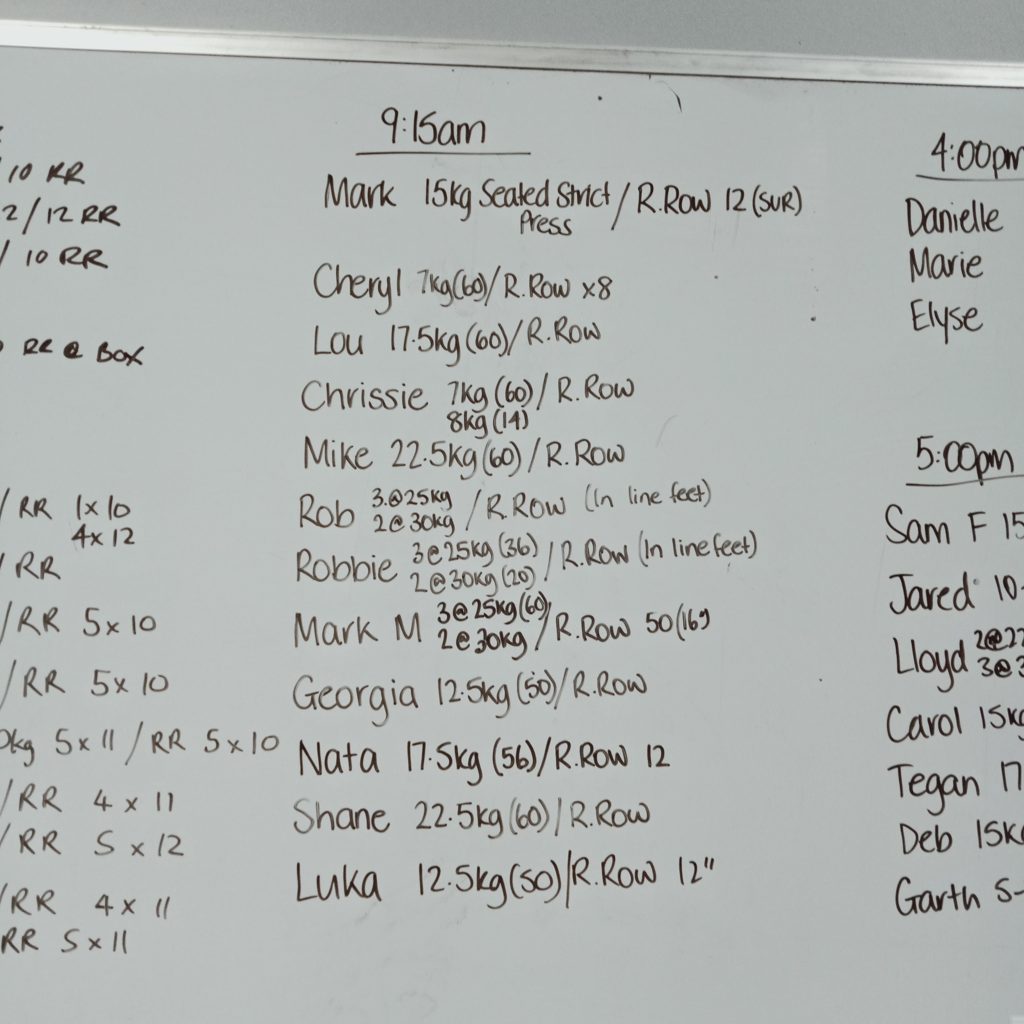 10 RR
2/12 RR
/ 10 RR
RR @ BOX
/ RR 1x10
4x12
/ RR
/RR 5x10
/RR 5x10
kg 5x11/RR 5x10
/RR 4x11
/RR 5x12
/RR 4x11
RR 5x11
9:15am
Mark 15kg Seated Strict / R.Row 12 (SUR)
Press
Cheryl 7kg(60)/R.Row x8
Lou 17.5kg(60)/R.Row
Chrissie 7kg(60)/R.Row
8kg(14)
Mike 22.5kg(60)/R.Row
Rob 3.@25kg / R.Row (In line feet)
2@30kg
Robbie 3@25kg(36) / R.Row (In line feet)
2@30kg(20)
Mark M 3@25kg(60) / R.Row 50(16)
2@30kg
Georgia 12.5kg(50)/R.Row
Nata 17.5kg(56)/R.Row 12
Shane 22.5kg(60)/R.Row
Luka 12.5kg(50)/R.Row 12"
4:00pm
Danielle
Marie
Elyse
5:00pm
Sam F 15
Jared 10-
Lloyd 2@22
3@3
Carol 15kg
Tegan 17
Deb 15kg
Garth 5-